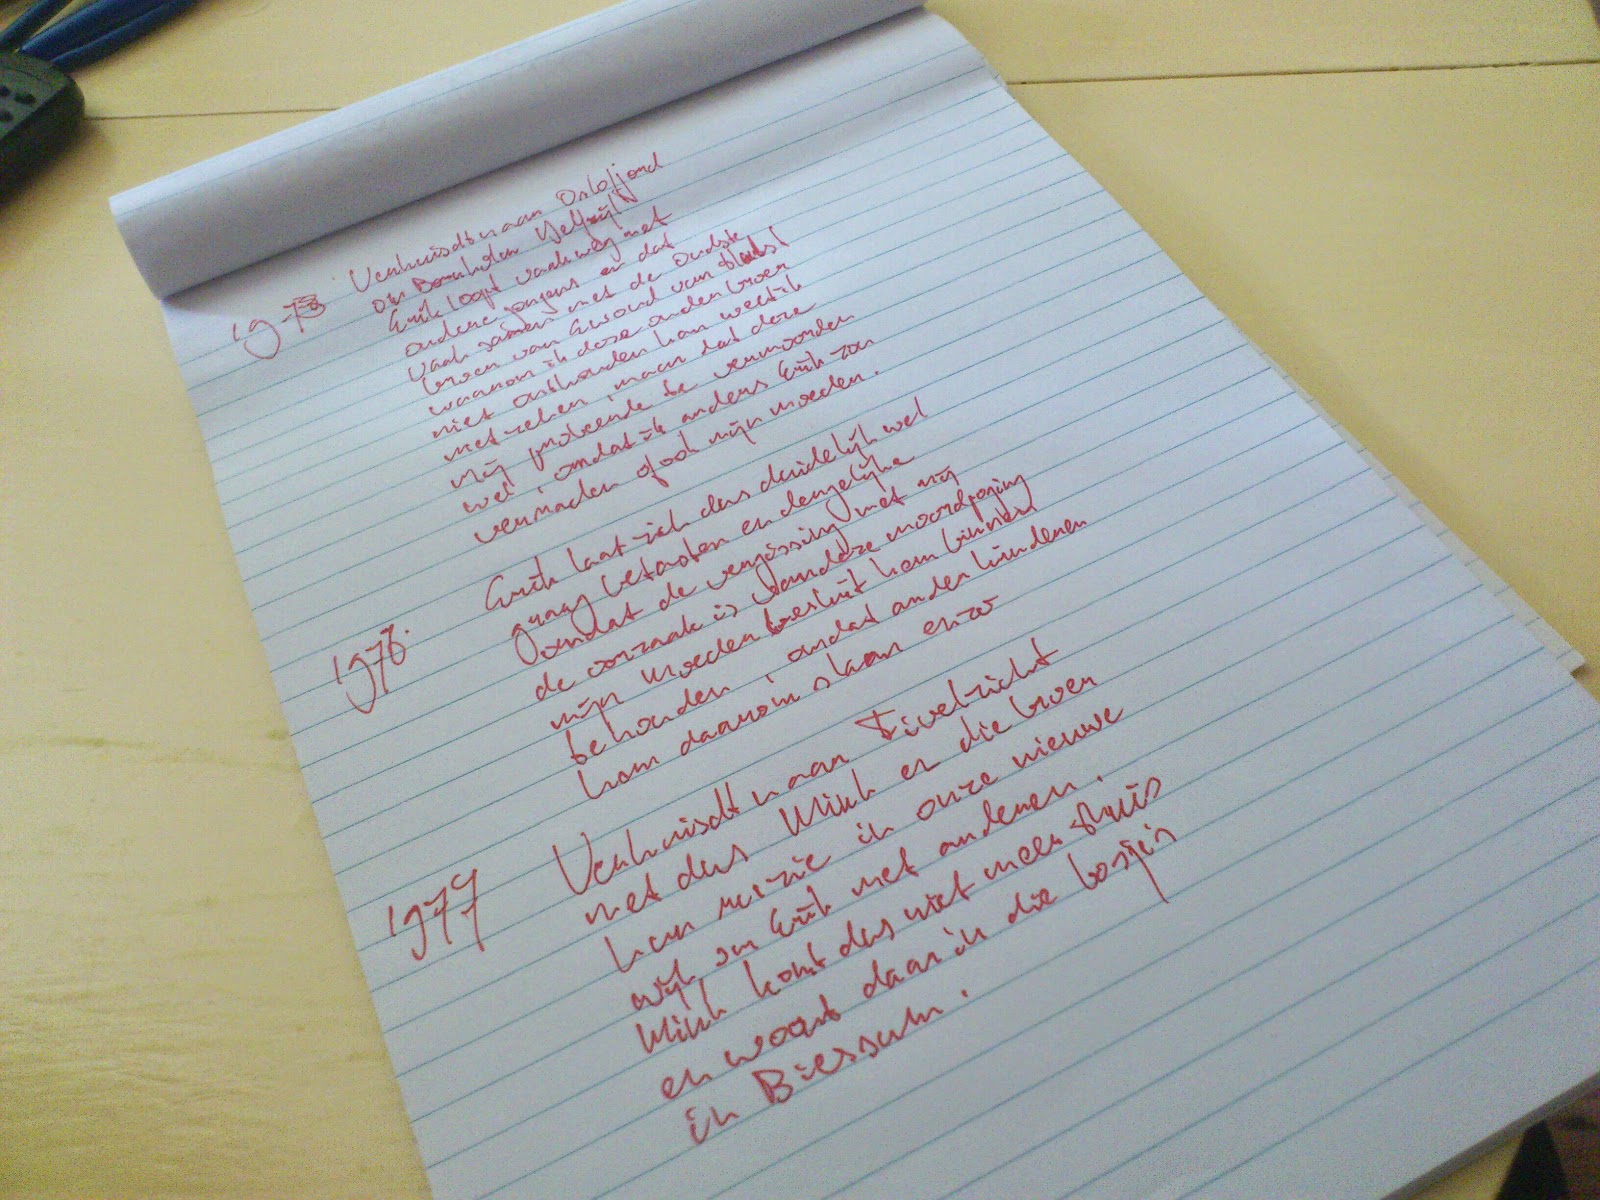 19-73 Verhuisdt naar Oslofjord
en Bornholm Delfzijl
Erik loopt vaak weg met
andere jongens en dat
vaak samen met de oudste
broer van Ewoud van
waarom ik deze ander broer
niet onthouden kan weet ik
met zeker, maar dat deze
mij probeerde te vermoorden
wel, omdat ik anders Erik zou
verraden of ook mijn moeder.
1976. Erik laat zich dus duidelijk wel
graag betasten en dergelijke
omdat de vergissing met mij
de oorzaak is van deze moordpoging
mijn moeder besluit hem binnen
behouden, omdat ander kinderen
hem daarom slaan enzo
1977 Verhuisdt naar Fivelzicht
met dus Mink er die broer
kan ruizie in onze nieuwe
wijk, om Erik met anderen.
Mink komt dus niet meer thuis
en woont daar in die bosjes
in Biessum.